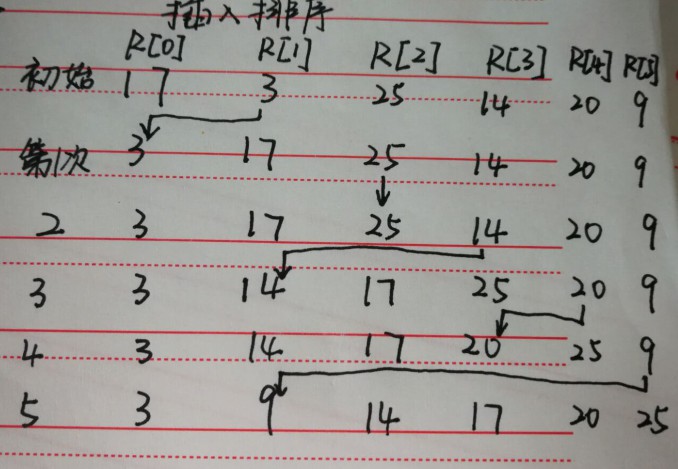 插入排序
R[0] R[1] R[2] R[3] R[4] R[5]
初始 17 3 25 14 20 9
第1次 3 17 25 14 20 9
2 3 17 25 14 20 9
3 3 14 17 25 20 9
4 3 14 17 20 25 9
5 3 9 14 17 20 25